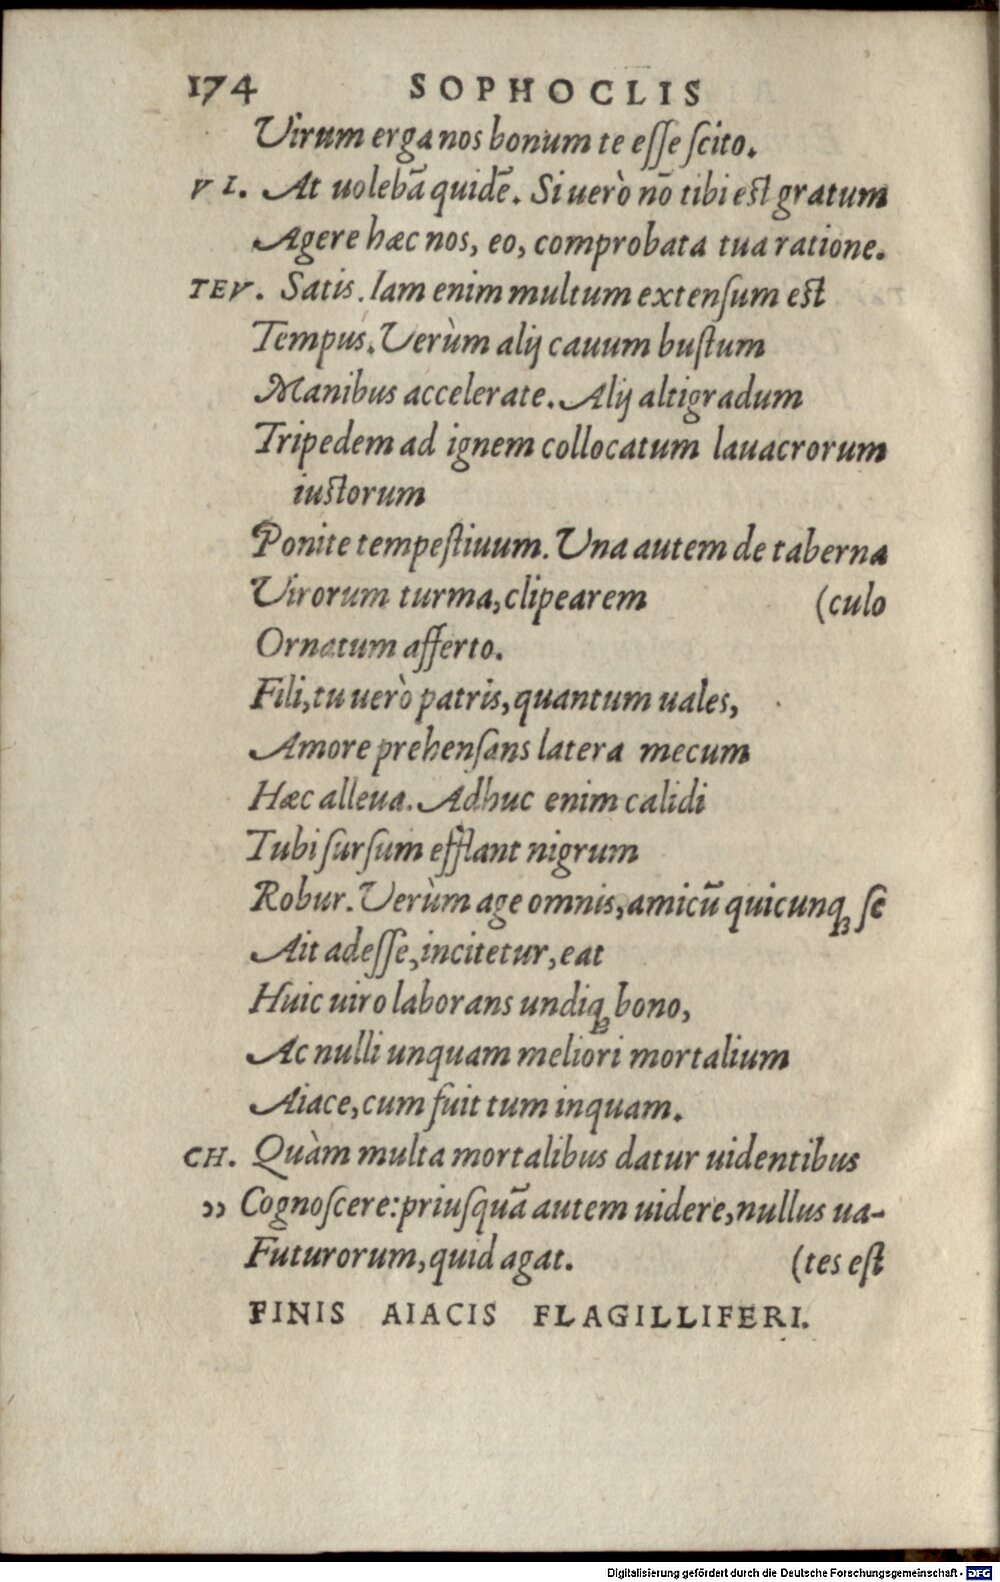 174 SOPHOCLIS
Virum erga nos bonum te eſſe ſcito.
VI. At uolebã quidẽ. Si uerò nõ tibi est gratum
Agere hæc nos, eo, comprobata tua ratione.
TEV. Satis. Iam enim multum extenſum est
Tempus. Verùm alij cauum buſtum
Manibus accelerate. Alij altigradum
Tripedem ad ignem collocatum lauacrorum
iustorum
Ponite tempeſtiuum. Vna autem de taberna
Virorum turma, clipearem (culo
Ornatum afferto.
Fili, tu uerò patris, quantum uales,
Amore prehenſans latera mecum
Hæc alleua. Adhuc enim calidi
Tubi ſurſum efflant nigrum
Robur. Verùm age omnis, amicũ quicunqꝫ ſe
Ait adeſſe, incitetur, eat
Huic uiro laborans undiqꝫ bono,
Ac nulli unquam meliori mortalium
Aiace, cum fuit tum inquam.
CH. Quàm multa mortalibus datur uidentibus
„ Cognoſcere: priuſquã autem uidere, nullus ua-
Futurorum, quid agat. (tes eſt
FINIS AIACIS FLAGILLIFERI.
Digitalisierung gefördert durch die Deutsche Forschungsgemeinschaft - DFG